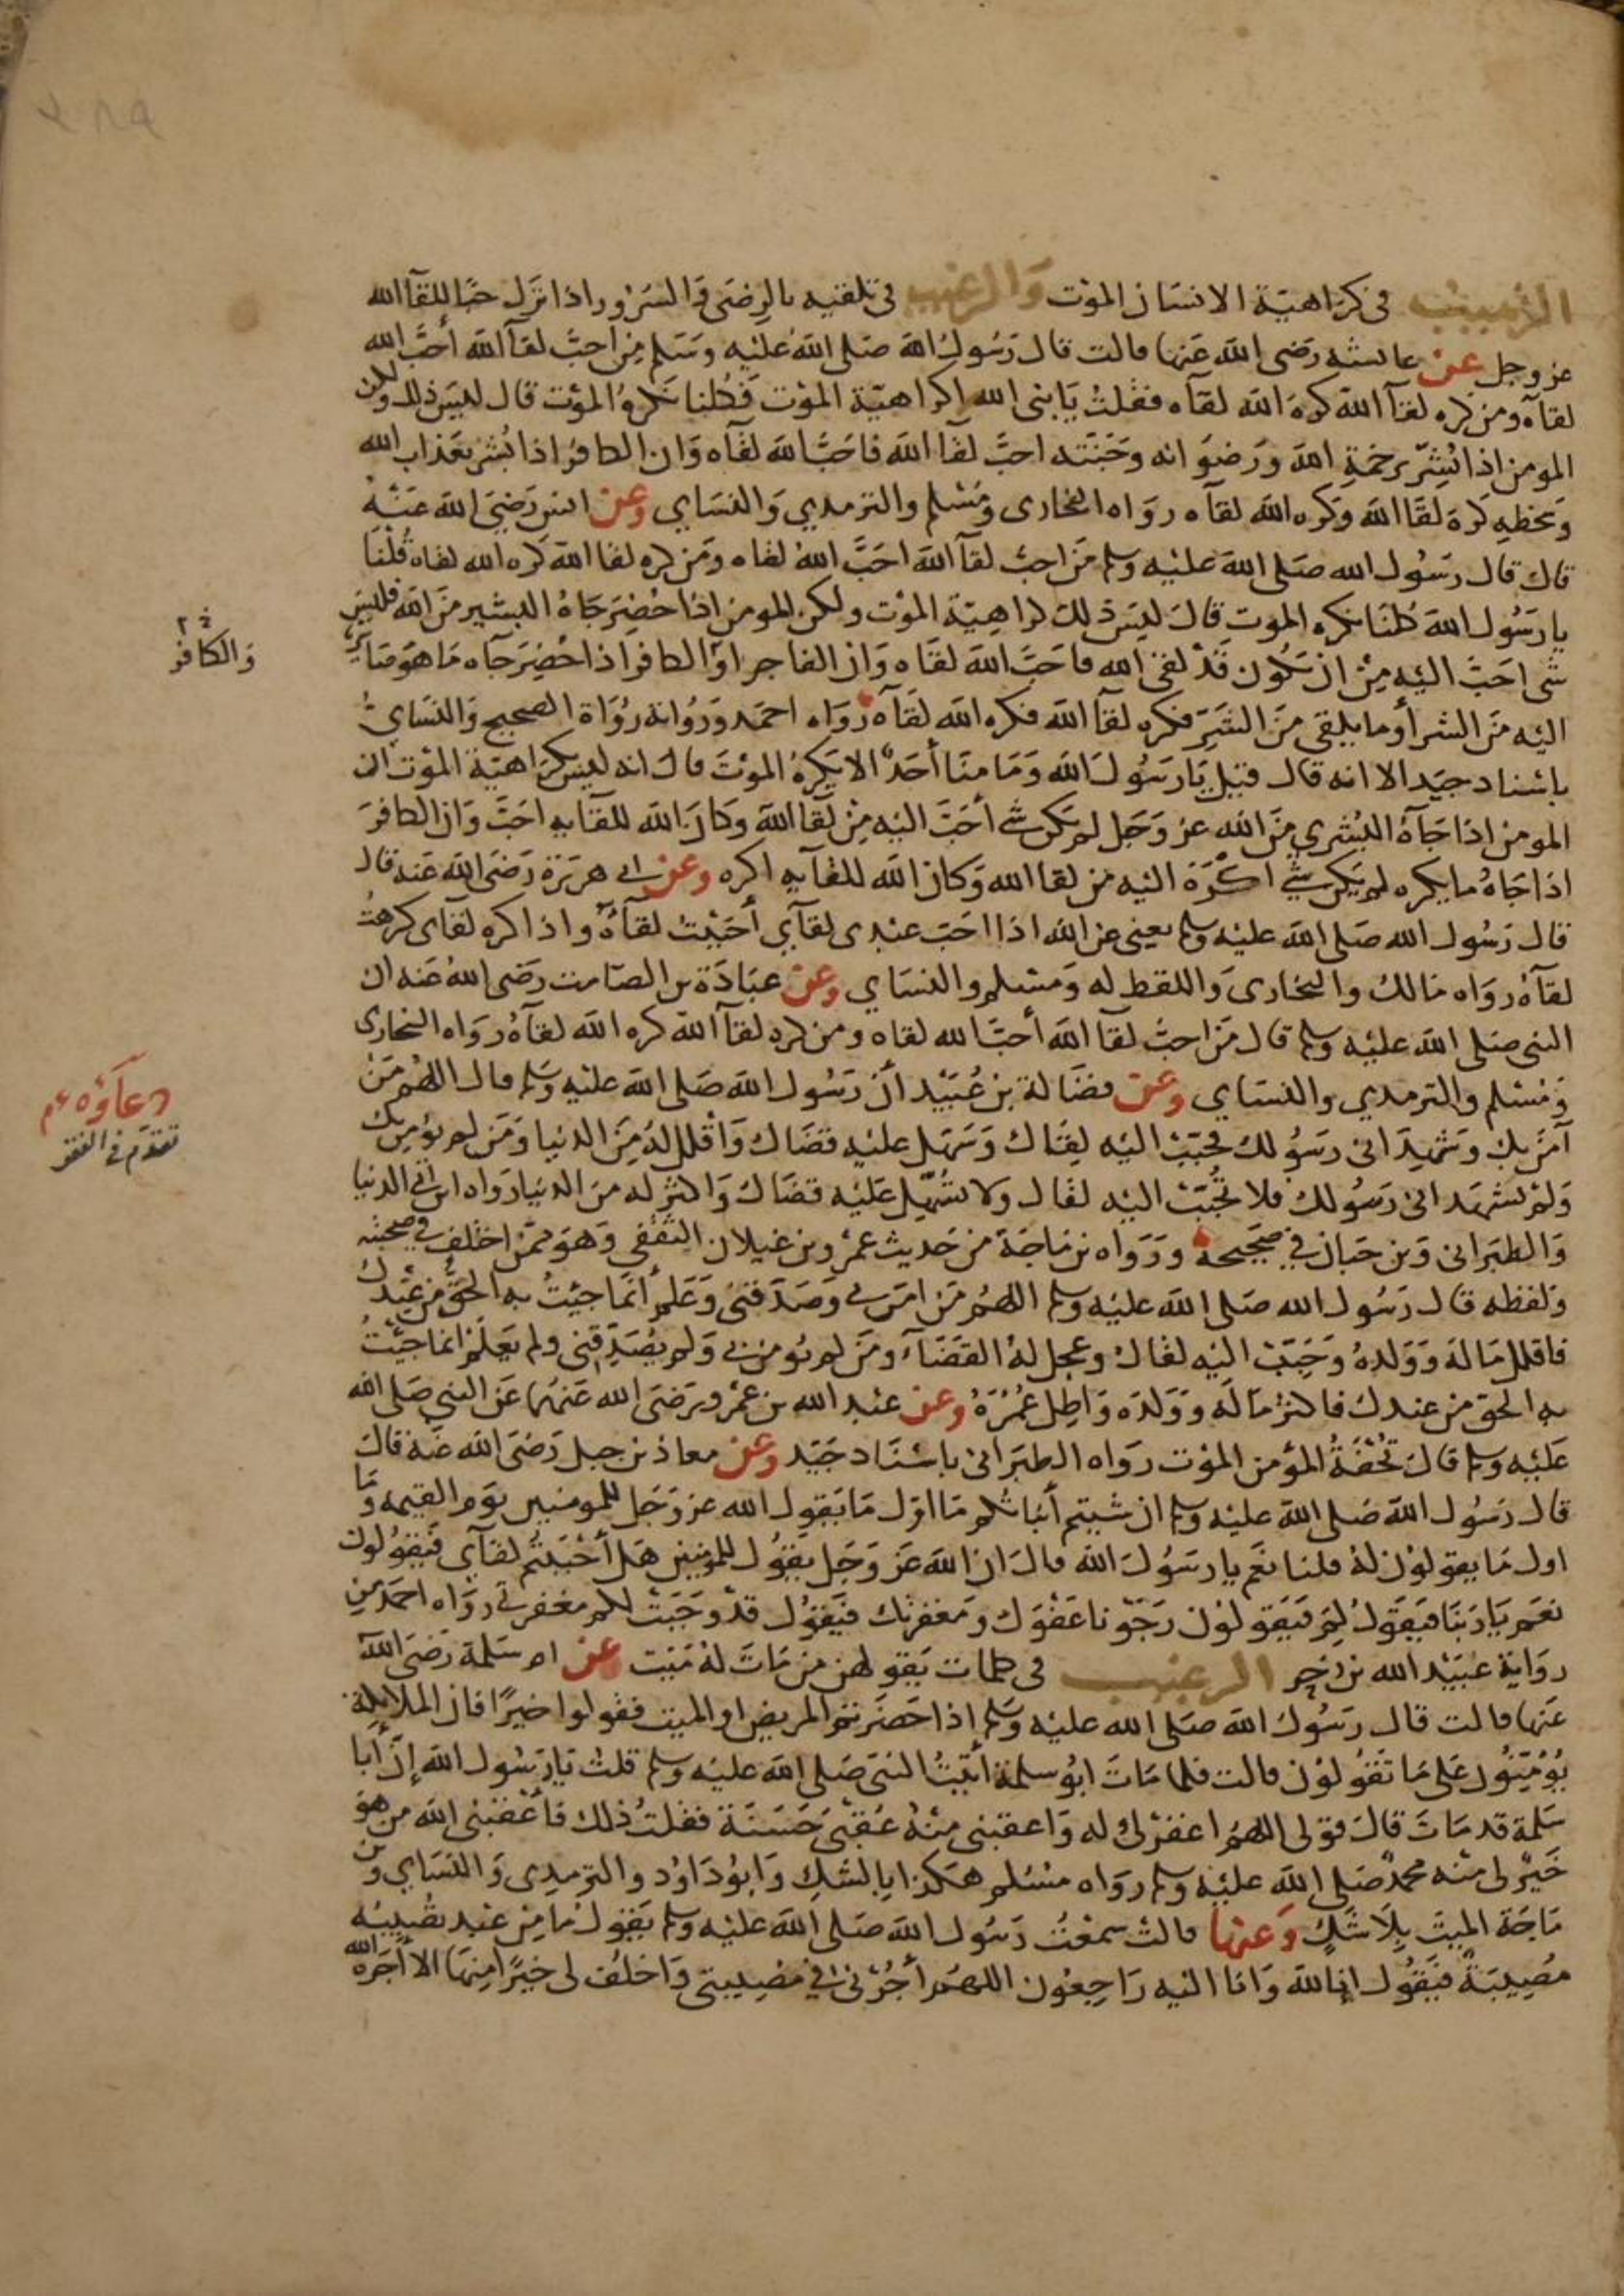 ٢٨٩
الترهيب في كراهية الانسان الموت والترغيب في تلقيه بالرضى والسرور اذا نزل حبا للقآ الله
عز وجل عن عائشه رضى الله عنها قالت قال رسول الله صلى الله عليه وسلم من احب لقآ الله أحب الله
لقآه ومن كره لقآ الله كره الله لقآه فقلت يا نبى الله اكراهية الموت فكلنا نكره الموت قال ليس ذلك ولكن
المومن اذا بُشِّر برحمة الله ورضوانه وجنته احب لقا الله فاحب الله لقآه وان الكافر اذا بُشر بعذاب الله
وسخطه كره لقا الله وكره الله لقآه رواه البخارى ومسلم والترمدي والنساي وعن انس رضى الله عنه
قال قال رسول الله صلى الله عليه وسلم من احب لقآ الله احب الله لقاه ومن كره لقا الله كره الله لقاه قلنا
يا رسول الله كلنا نكره الموت قال ليس ذلك كراهية الموت ولكن المومن اذا حُضِر جاه البشير من الله فليس
شى احب اليه من ان تكون قد لقى الله فاحب الله لقاه وان الفاجر او الكافر اذا حُضِر جآه ما هو صائر
اليه من الشر أو ما يلقى من الشر فكره لقآ الله فكره الله لقآه رواه احمد ورواته رواة الصحيح والنساي
باسناد جيد الا انه قال قيل يا رسول الله وما منا أحد الا يكره الموت قال انه ليس بكراهية الموت ان
المومن اذا جآه البشرى من الله عز وجل لم يكن شى أحب اليه من لقا الله وكان الله للقايه احب وان الكافر
اذا جاه ما يكره لم يكن شي اكره اليه من لقا الله وكان الله للقآيه اكره وعن ابي هريرة رضى الله عنه قال
قال رسول الله صلى الله عليه وسلم يعني عن الله اذا احب عبدى لقآي أحببت لقآه واذا كره لقاى كرهت
لقآه رواه مالك والبخارى واللفظ له ومسلم والنساي وعن عبادة بن الصامت رضى الله عنه ان
النبى صلى الله عليه وسلم قال من احب لقآ الله أحب الله لقاه ومن كره لقآ الله كره الله لقآه رواه البخارى
ومسلم والترمدي والنساي وعن فضالة بن عُبيد أن رسول الله صلى الله عليه وسلم قال اللهم من
آمن بك وشهد انى رسولك فحبب اليه لقاك وسهل عليه قضاك وأقلل له من الدنيا ومن لم يؤمن بك
ولم يشهد انى رسولك فلا تحبب اليه لقاك ولا تسهل عليه قضاك واكثر له من الدنيا رواه ابن ابى الدنيا
والطبرانى وبن حبان في صحيحه ورواه بن ماجة من حديث عمرو بن غيلان الثقفى وهو ممن اختلف فى صحبته
ولفظه قال رسول الله صلى الله عليه وسلم اللهم من امن بى وصدقنى وعلم أنما جيت به الحق من عندك
فاقلل ماله وولده وحبب اليه لقاك وعجل له القضآ ومن لم يومن بى ولم يصدقنى ولم يعلم انما جيت
به الحق من عندك فاكثر ماله وولده واطل عمره وعن عبد الله بن عمرو رضى الله عنهما عن النبى صلى الله
عليه وسلم قال تحفة المؤمن الموت رواه الطبرانى باسناد جيد وعن معاذ بن جبل رضى الله عنه قال
قال رسول الله صلى الله عليه وسلم ان شيتم أنباتكم ما اول ما يقول الله عز وجل للمومنيين يوم القيمه وما
اول ما يقولون له قلنا نعم يا رسول الله قال ان الله عز وجل يقول للمومنين هل أحببتم لقآي فيقولون
نعم يا ربنا فيقول لم فيقولون رجونا عفوك ومغفرتك فيقول قد وجبت لكم مغفرتى رواه احمد من
رواية عبيد الله بن زحر الترغيب فى كلمات يقولهن من مات له ميت عن ام سلمة رضى الله
عنها قالت قال رسول الله صلى الله عليه وسلم إذا حضرتم المريض او الميت فقولوا خيرا فان الملايكة
يؤمنون على ما تقولون قالت فلما مات ابو سلمة أتيت النبى صلى الله عليه وسلم قلت يا رسول الله إن أبا
سلمة قد مات قال قولى اللهم اغفر لى وله واعقبنى منه عقبى حسنة فقلت ذلك فأعقبنى الله من هو
خير لى منه محمد صلى الله عليه وسلم رواه مسلم هكذا بالشك وابو داوُد والترمدى والنساي وبن
ماجة الميت بلا شك وعنها قالت سمعت رسول الله صلى الله عليه وسلم يقول ما من عبد تصيبه
مصيبة فيقول إنا لله وانا اليه راجعون اللهم أجرنى في مصيبتى واخلف لى خيرا منها الا أجره الله
والكافر
دعآؤه ع م
تقدم في الفقر